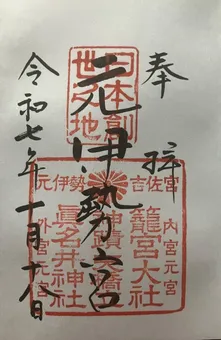 奉拝
元伊勢宮
令和七年一月十八日
日本創
世之地
元伊勢 吉佐宮
内宮元宮
籠宮大社
神蹟天橋立
眞名井神社
外宮元宮